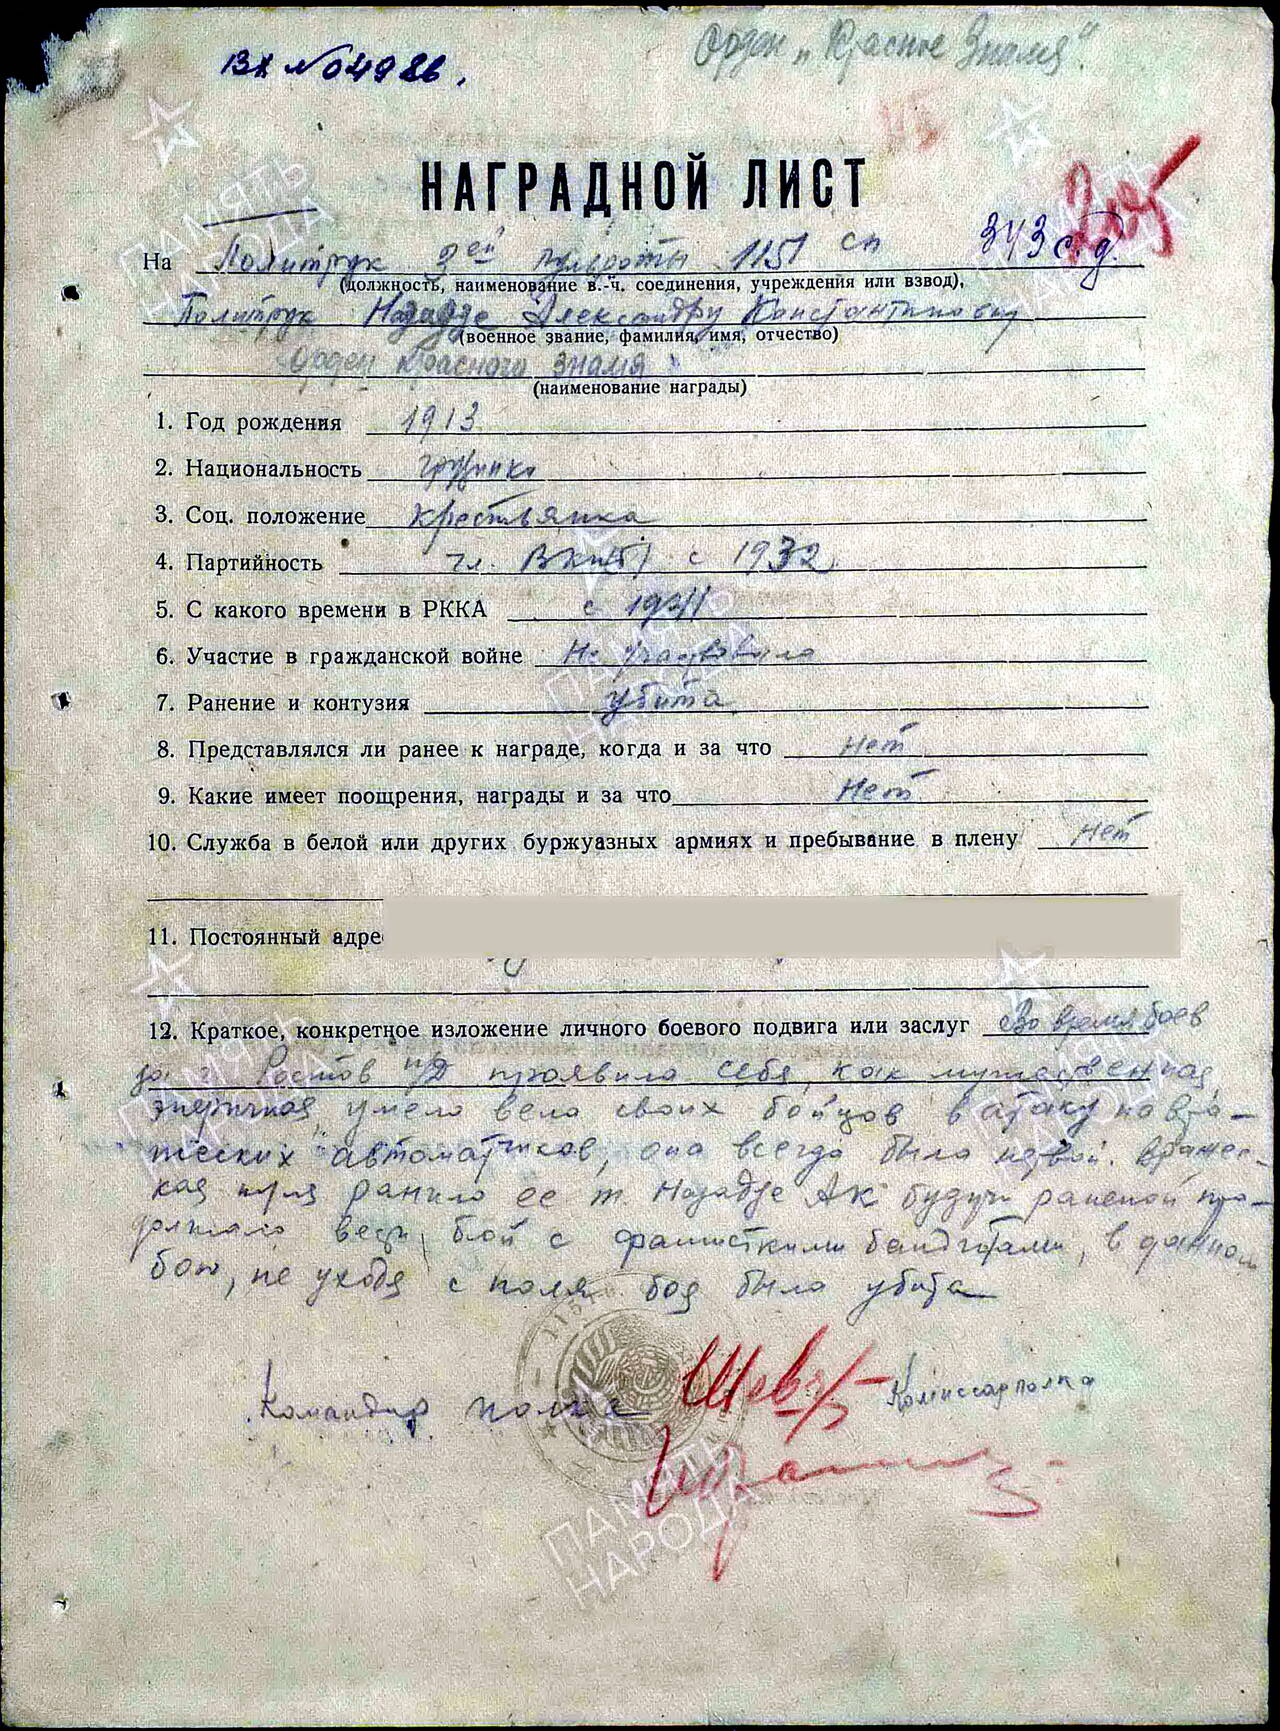 Вх №04986.
Орден „Красное Знамя"
НАГРАДНОЙ ЛИСТ
На Политрук 2ей пульроты 1151 сп 343 с.д.
(должность, наименование в.-ч. соединения, учреждения или взвод),
Политрук Надзадзе Александру Константиновну
(военное звание, фамилия, имя, отчество)
Орден Красного Знамя
(наименование награды)
1. Год рождения 1913
2. Национальность грузинка
3. Соц. положение крестьянка
4. Партийность чл. ВКП(б) с 1932
5. С какого времени в РККА с 1941
6. Участие в гражданской войне Не участвовала
7. Ранение и контузия убита
8. Представлялся ли ранее к награде, когда и за что Нет
9. Какие имеет поощрения, награды и за что Нет
10. Служба в белой или других буржуазных армиях и пребывание в плену Нет
11. Постоянный адре
12. Краткое, конкретное изложение личного боевого подвига или заслуг Во время боев
за г. Ростов н/Д проявила себя, как мужественная,
энергичная, умело вела своих бойцов в атаку на вра-
жеских автоматчиков, она всегда была первой. Вражес-
кая пуля ранила ее т. АК будучи раненой про-
должала вести бой с фашисткими бандитами, в данном
бою, не уходя с поля боя была убита
Командир полка Комиссар полка
ПАМЯТЬ НАРОДА
ПАМЯТЬ НАРОДА
ПАМЯТЬ НАРОДА
ПАМЯТЬ НАРОДА
ПАМЯТЬ НАРОДА
ПАМЯТЬ НАРОДА